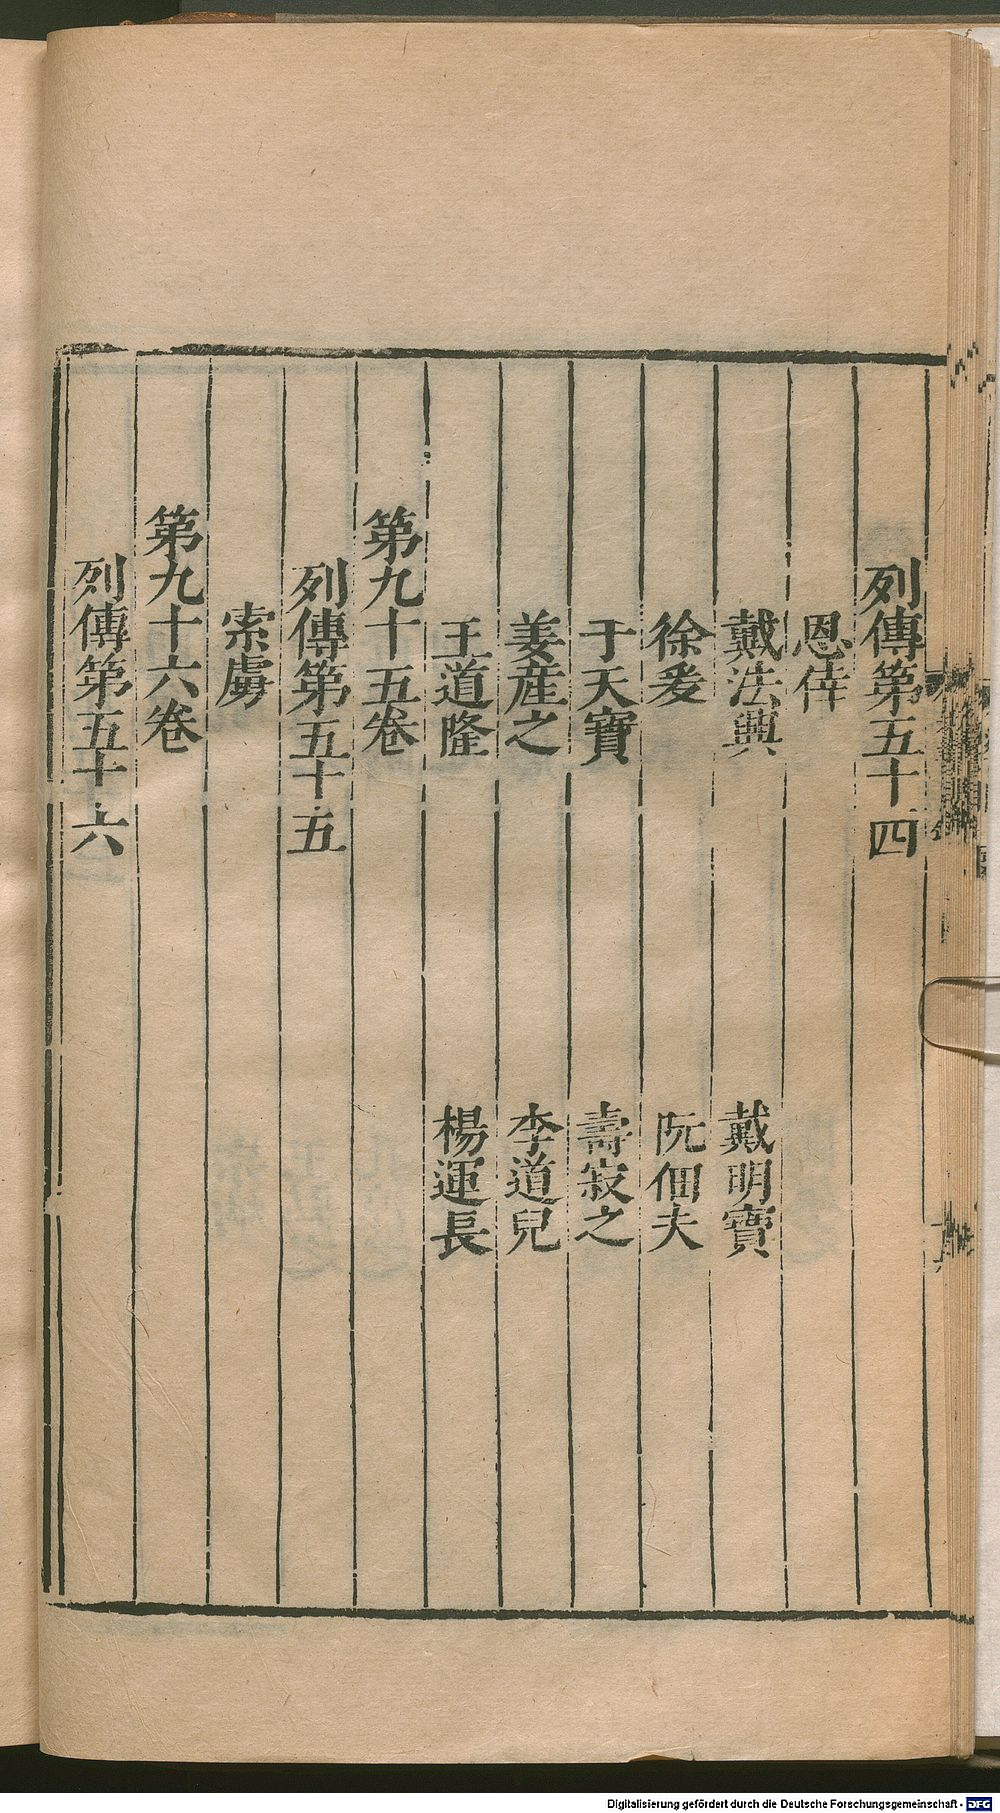 列傳第五十四
恩倖
戴法興 戴明寶
徐爰 阮佃夫
于天寶 壽寂之
姜産之 李道兒
王道隆 楊運長
第九十五卷
列傳第五十五
索虜
第九十六卷
列傳第五十六
Digitalisierung gefördert durch die Deutsche Forschungsgemeinschaft - DFG